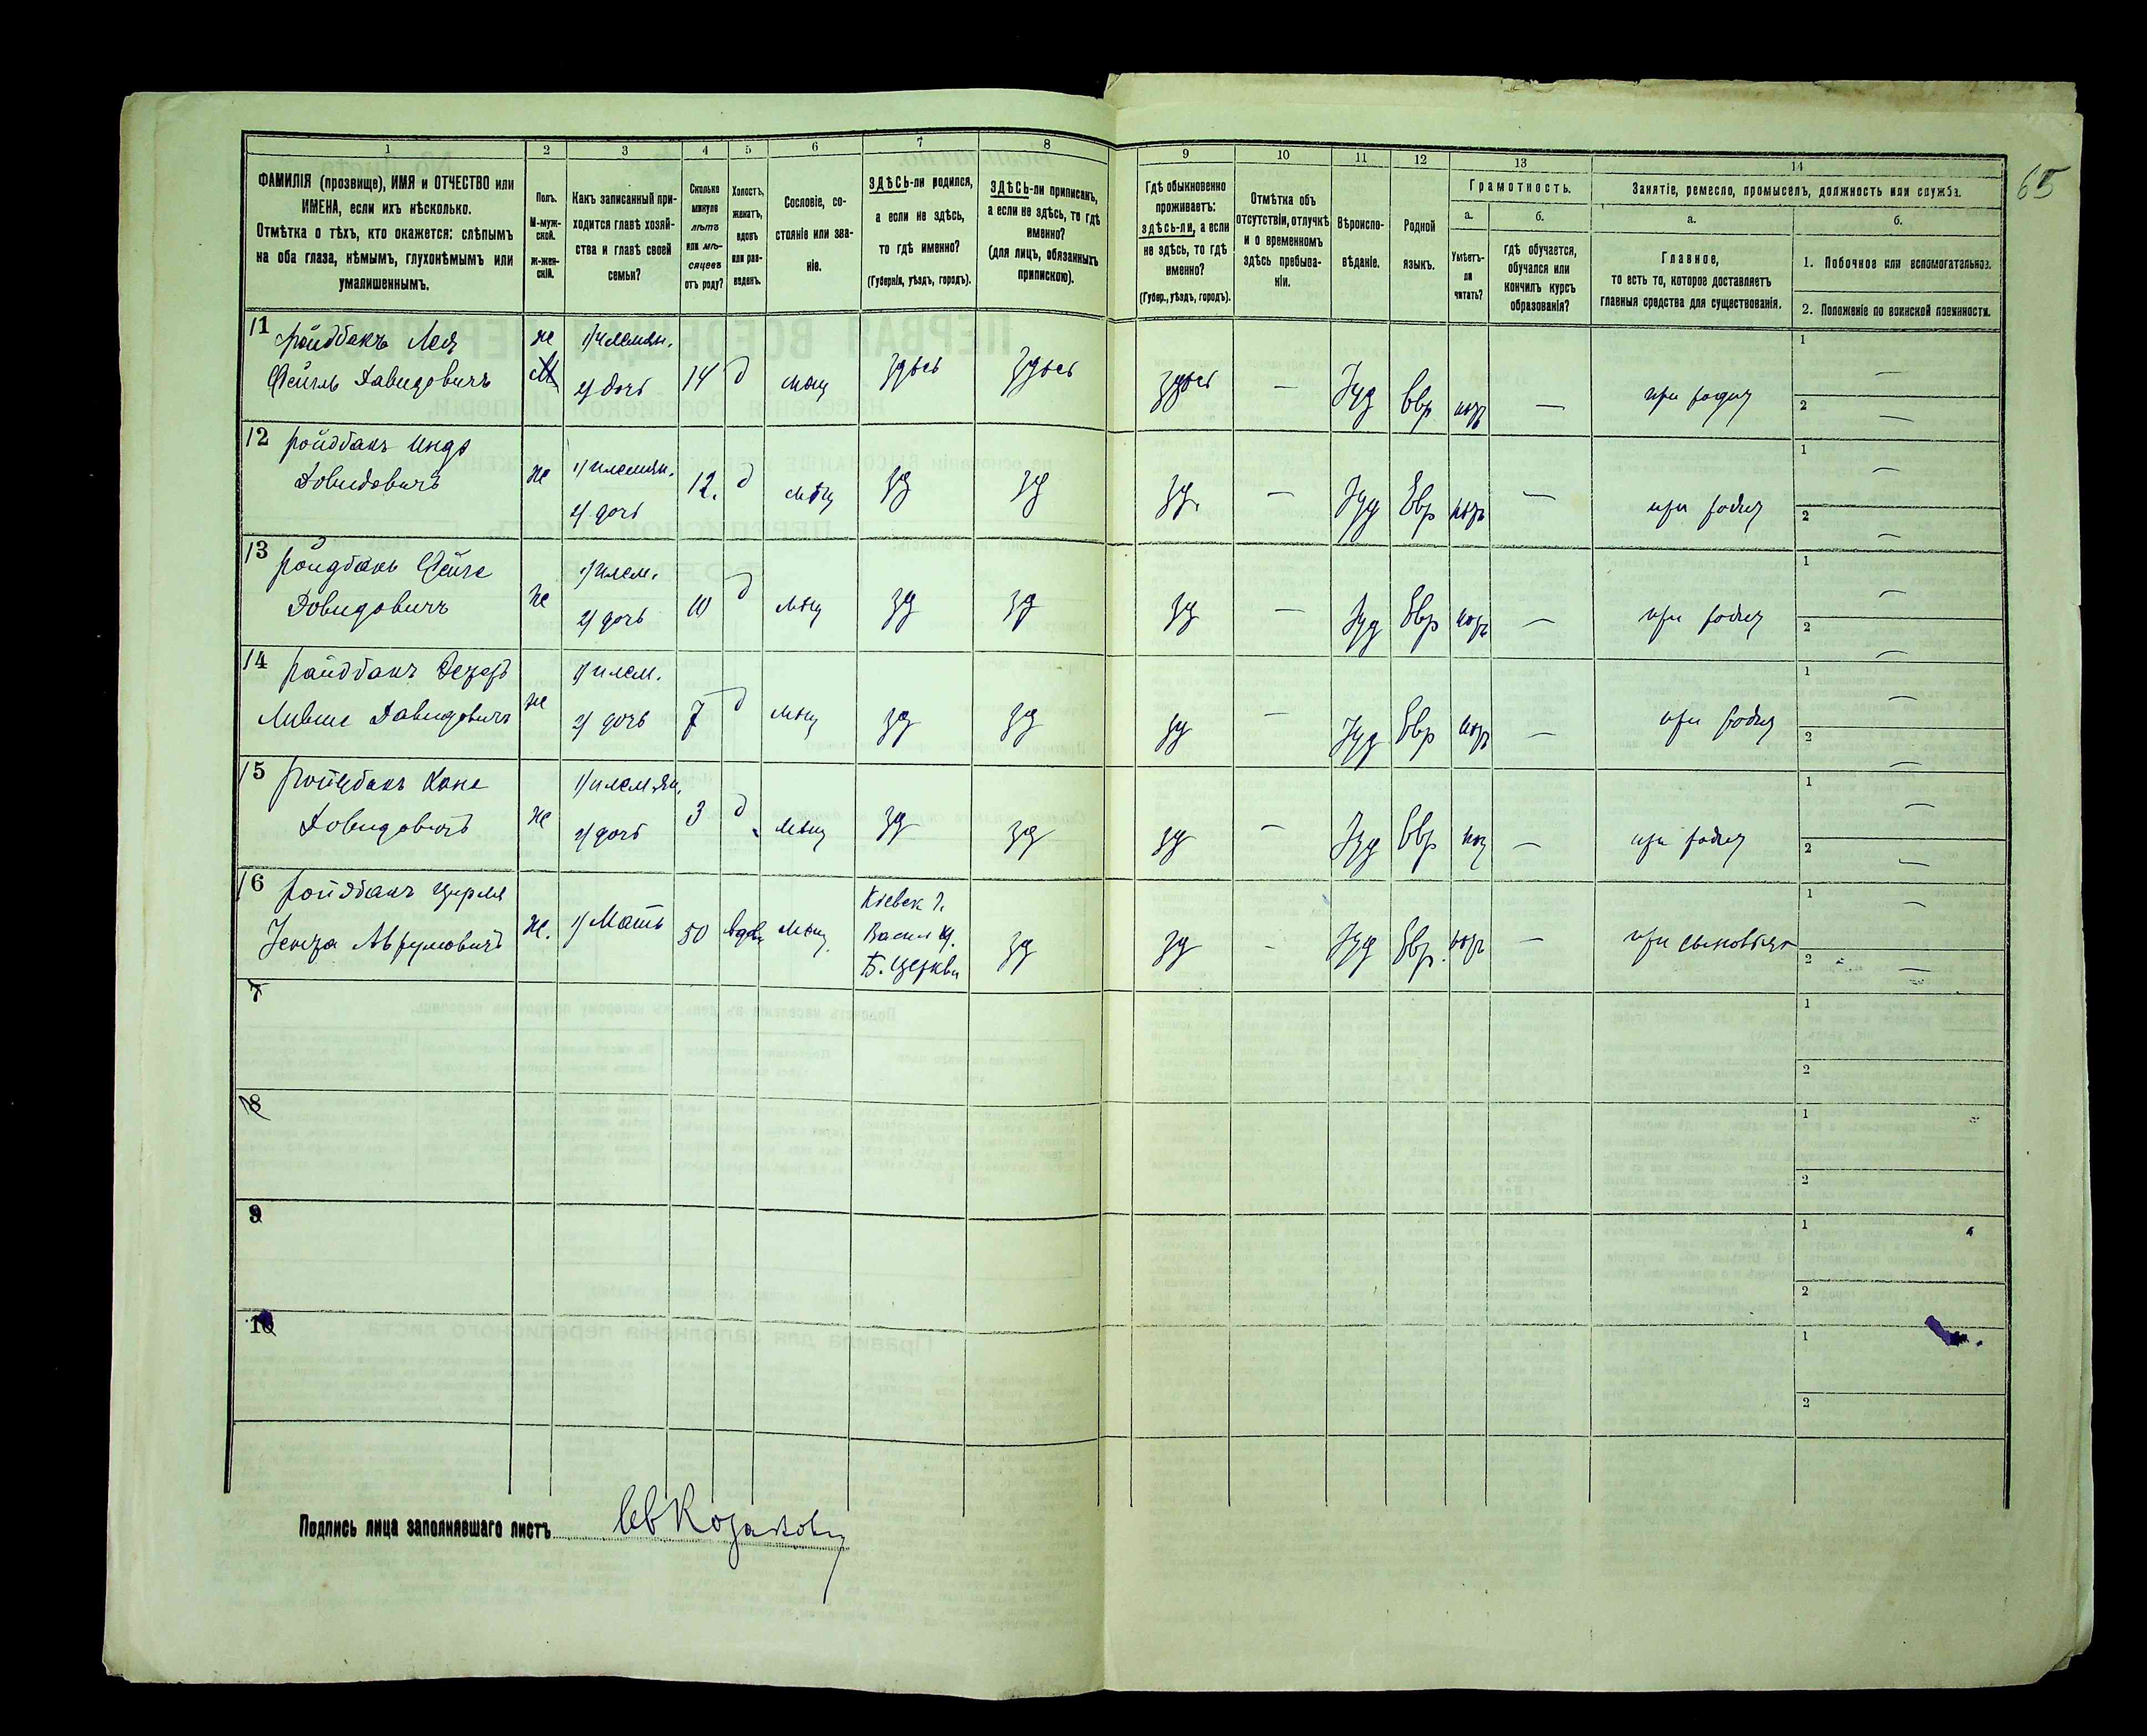 65
1 2 3 4 5 6 7 8 9 10 11 12 13 14
ФАМИЛІЯ (прозвище), ИМЯ и ОТЧЕСТВО или
ИМЕНА, если ихъ нѣсколько.
Отмѣтка о тѣхъ, кто окажется: слѣпымъ
на оба глаза, нѣмымъ, глухонѣмымъ или
умалишеннымъ.
Полъ.
М-муж-
ской.
ж-жен-
скій.
Какъ записанный при-
ходится главѣ хозяй-
ства и главѣ своей
семьи?
Сколько
минуло
лѣтъ
или мѣ-
сяцевъ
отъ роду?
Холостъ,
женатъ,
вдовъ
или раз-
веденъ.
Сословіе, со-
стояніе или зва-
ніе.
ЗДѢСЬ-ли родился,
а если не здѣсь,
то гдѣ именно?
(Губернія, уѣздъ, городъ).
ЗДѢСЬ-ли приписанъ,
а если не здѣсь, то гдѣ
именно?
(для лицъ, обязанныхъ
припискою).
Гдѣ обыкновенно
проживаетъ:
здѣсь-ли, а если
не здѣсь, то гдѣ
именно?
(Губер., уѣздъ, городъ).
Отмѣтка объ
отсутствіи, отлучкѣ
и о временномъ
здѣсь пребыва-
ніи.
Вѣроиспо-
вѣданіе.
Родной
языкъ.
Грамотность.
а.
Умѣетъ-
ли
читать?
б.
Гдѣ обучается,
обучался или
кончилъ курсъ
образованія?
Занятіе, ремесло, промыселъ, должность или служба.
а.
Главное,
то есть то, которое доставляетъ
главныя средства для существованія.
б.
1. Побочное или вспомогательное.
2. Положеніе по воинской повинности.
11 Ройдбакъ Лея
Фейгль Давидовичъ
ж
1) племян.
2) дочь
14 д мѣщ здѣсь здѣсь здѣсь — Іуд Евр — при родит
1 —
2 —
12 Ройдбакъ
Довидовичъ
ж
1) племян.
2) дочь
12. д мѣщ зд зд зд. — Іуд Евр — при родит
1 —
2 —
13 Ройдбакъ
Довидовичъ
ж
1) плем.
2) дочь
10 д мѣщ зд зд зд — Іуд Евр — при родит
1 —
2 —
14 Райдбакъ
Давидовичъ
ж
1) плем.
2) дочь
7 д мѣщ зд зд зд — Іуд Евр — при родит
1 —
2 —
15 Ройдбакъ Хана
Довидовичъ
ж
1) племян.
2) дочь
3 д мѣщ зд зд зд — Іуд Евр — при родит
1 —
2 —
16 Ройдбакъ
Аврумовичъ
ж. 1) Мать 50 вдов мѣщ.
Кіевск г.
Васил у.
Б. Церкви
зд зд - Іуд Евр. — при сыновьяхъ
1 —
2 —
7
1
2
8
1
2
9
1
2
10
1
2
Подпись лица заполнявшаго листъ